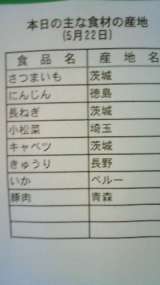 本日の主な食材の産地
(5月22日)
食品名 産地名
さつまいも 茨城
にんじん 徳島
長ねぎ 茨城
小松菜 埼玉
キャベツ 茨城
きゅうり 長野
いか ペルー
豚肉 青森